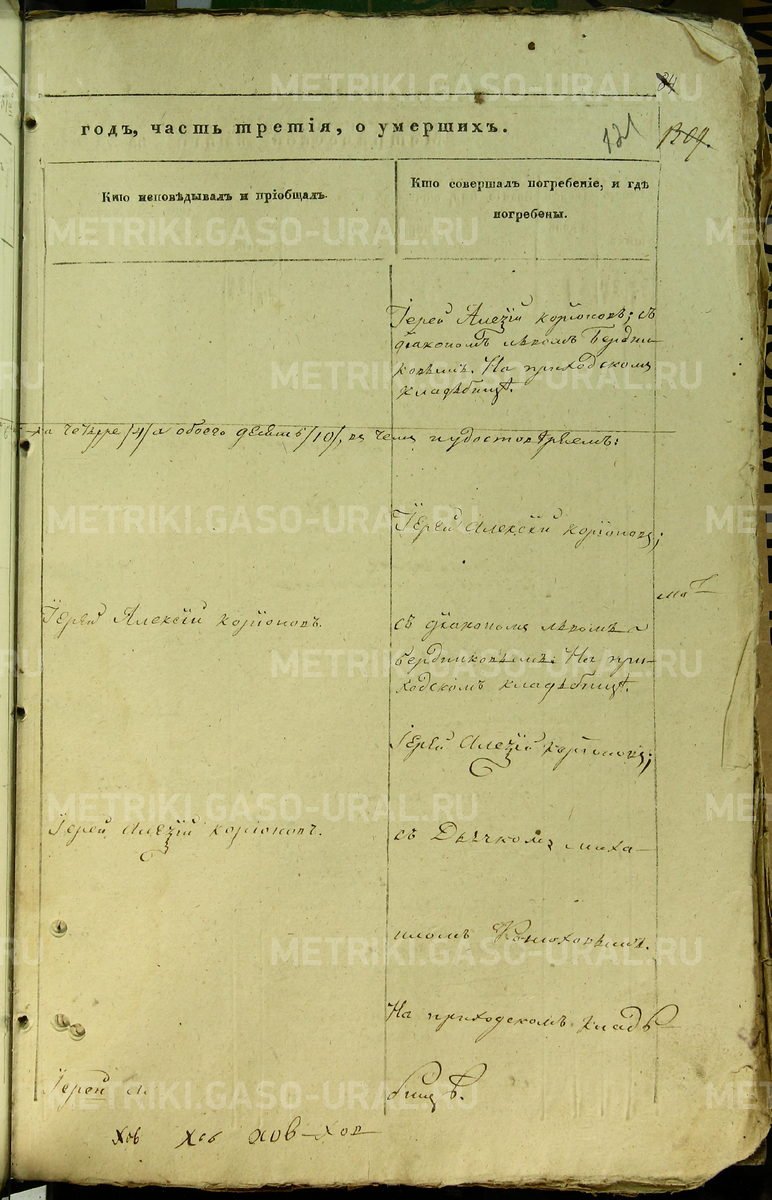 84
годъ, часть третія, о умершихъ.
121
1209.
Кто исповѣдывалъ и пріобщалъ.
Кто совершалъ погребеніе, и гдѣ
погребены.
Іерей Алеѯій Коріоновъ; съ
діакономъ Львомъ Бердни-
ковымъ. На приходскомъ
кладбищѣ.
на четыре /4/ а обоего десять /10/, въ чемъ и удостовѣряемъ:
Іерей Алексій Коріоновъ;
Іерей Алексій Коріоновъ.
съ діакономъ Львомъ
Бердниковымъ. На при-
ходскомъ кладбищѣ.
Іерей Алеѯій Коріоновъ;
Іерей Алеѯій Коріоновъ.
съ Дьячкомъ Миха-
иломъ Конюховымъ.
На приходскомъ кладб
бищѣ.
Іерей
хов хов хов-хов
METRIKI.GASO-URAL.RU